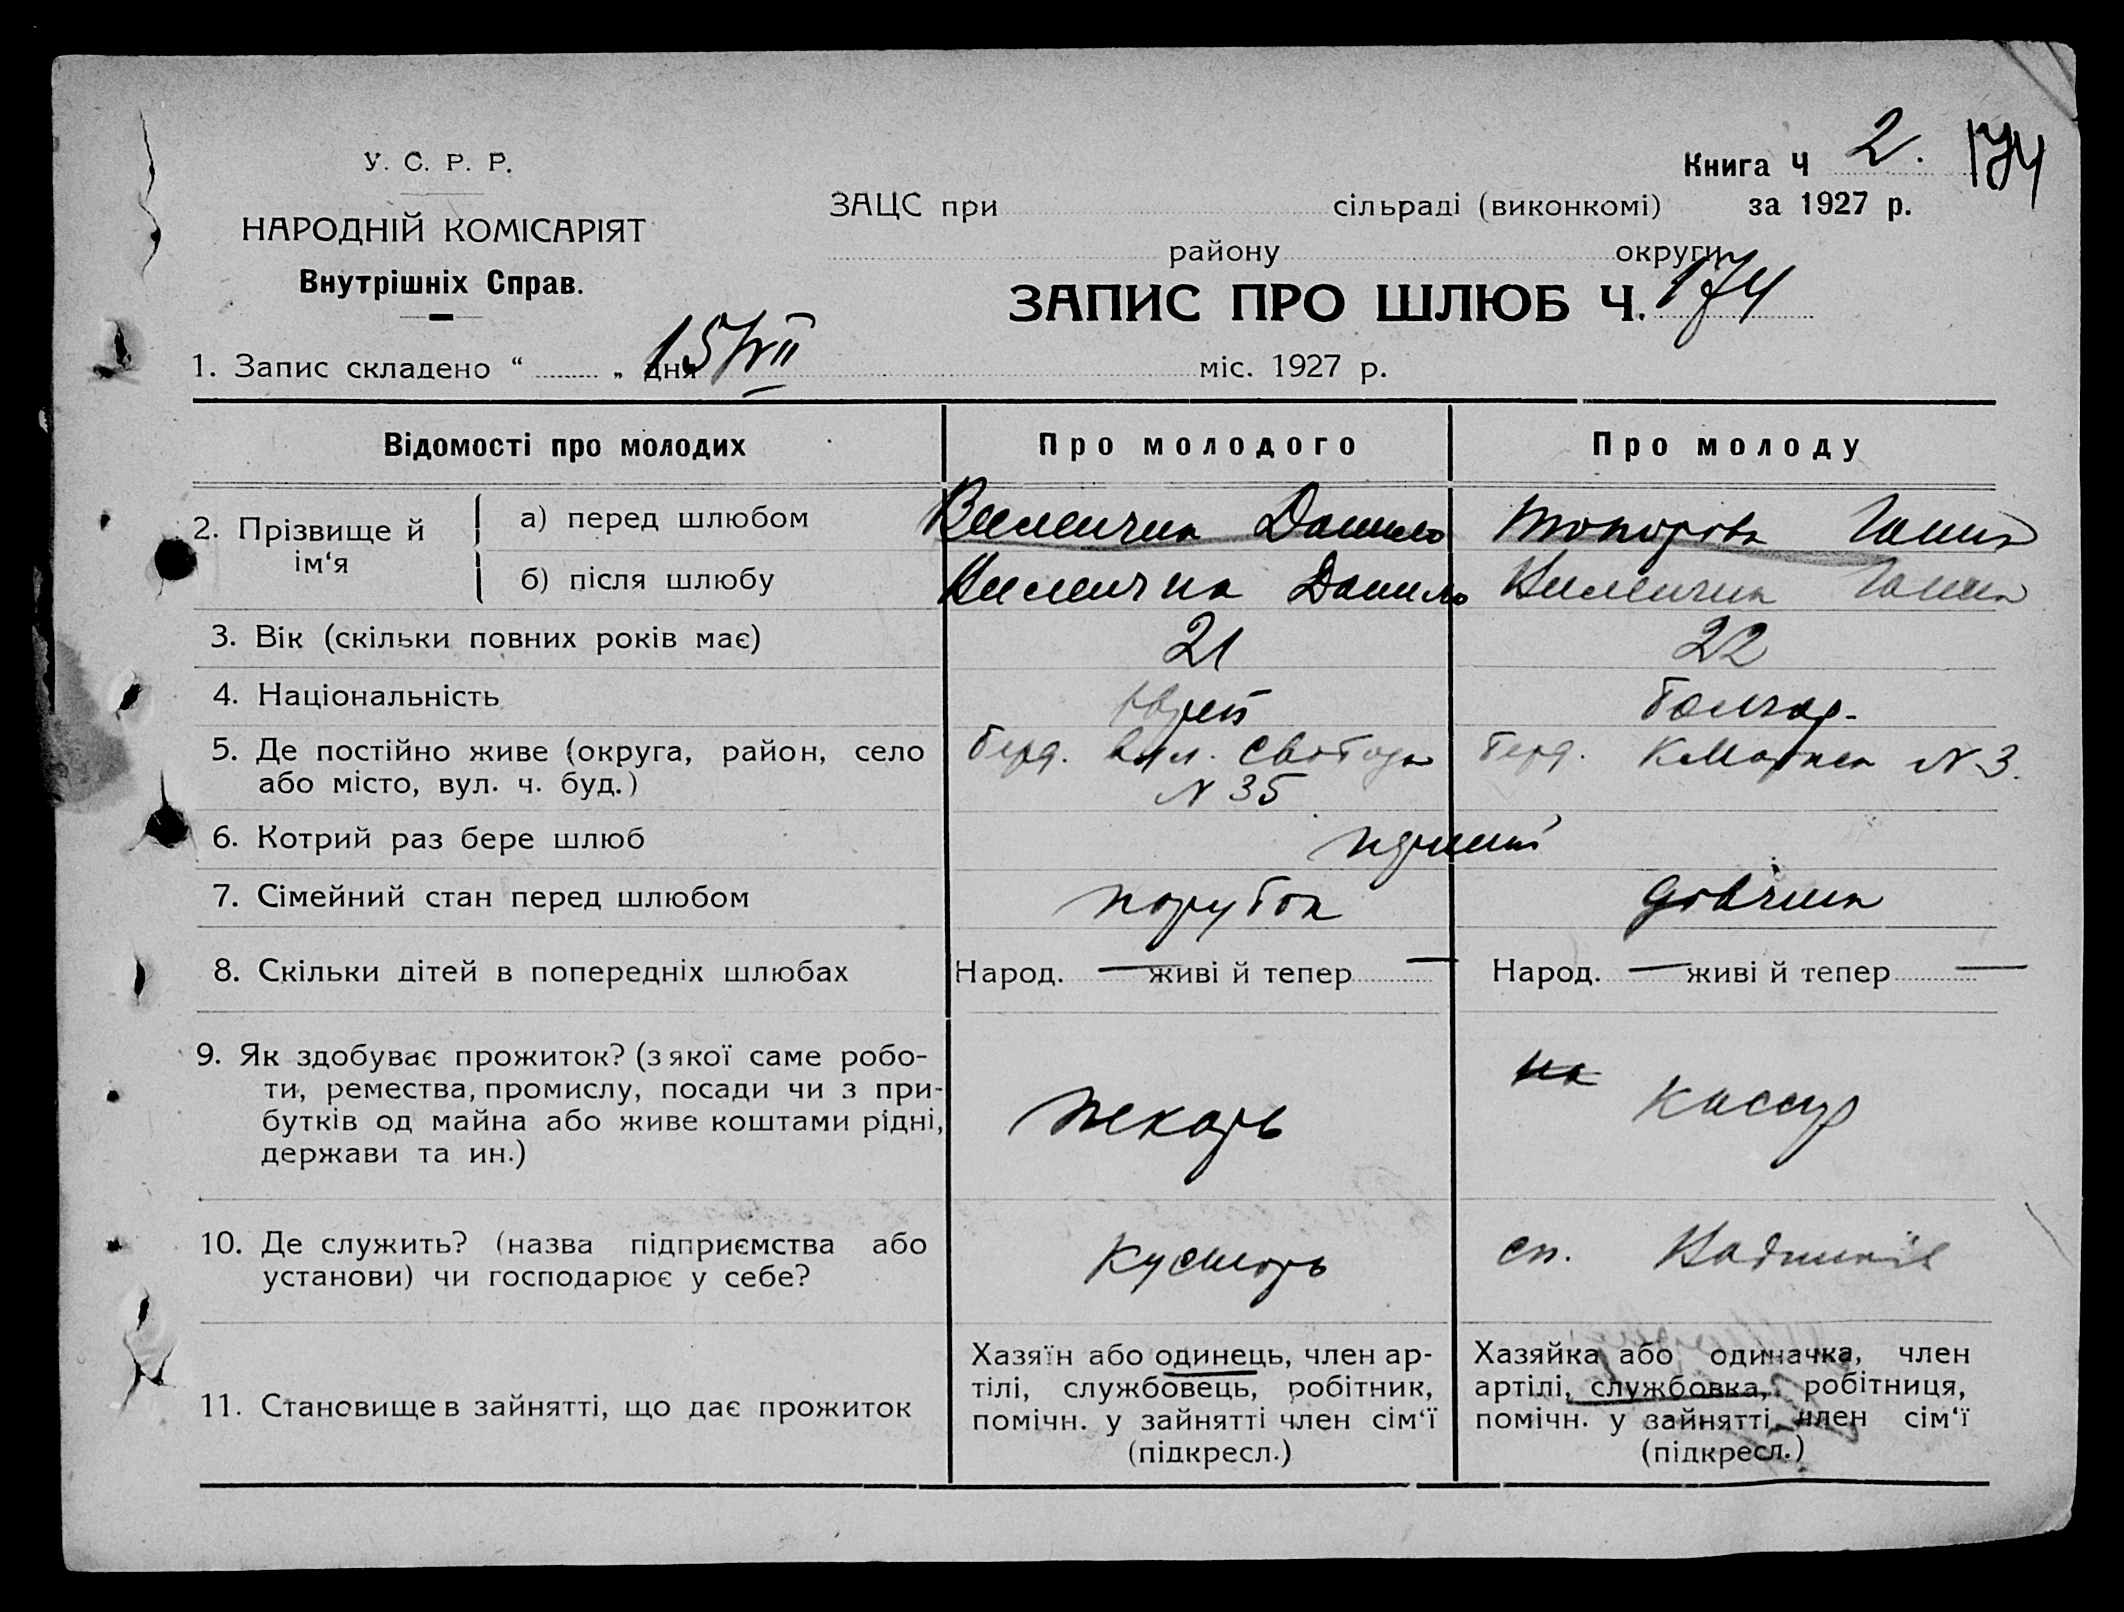 Книга Ч 2. 174
У. С. Р. Р.
ЗАЦС при сільраді (виконкомі) за 1927 р.
НАРОДНІЙ КОМІСАРІЯТ
району округи
Внутрішніх Справ.
ЗАПИС ПРО ШЛЮБ Ч. 174
1. Запис складено “ „ дня 15/VII міс. 1927 р.
Відомості про молодих Про молодого Про молоду
2. Прізвище й ім‘я
а) перед шлюбом Данило Топорова Ганна
б) після шлюбу Данило Ганна
3. Вік (скільки повних років має) 21 22
4. Національність Єврей болгар.
5. Де постійно живе (округа, район, село Берд. вул. Свободи Берд. К Маркса N 3.
або місто, вул. ч. буд.) N 35
6. Котрий раз бере шлюб перший
7. Сімейний стан перед шлюбом парубок дівчина
8. Скільки дітей в попередніх шлюбах Народ. — живі й тепер — Народ. — живі й тепер —
9. Як здобуває прожиток? (з якої саме робо-
ти, ремества, промислу, посади чи з при-
бутків од майна або живе коштами рідні,
держави та ин.)
пекарь
на касир
10. Де служить? (назва підприємства або
установи) чи господарює у себе?
кустарь
сп.
11. Становище в зайнятті, що дає прожиток
Хазяїн або одинець, член ар-
тілі, службовець, робітник,
помічн. у зайнятті член сім‘ї
(підкресл.)
Хазяйка або одиначка, член
артілі, службовка, робітниця,
помічн. у зайнятті, член сім‘ї
(підкресл.)